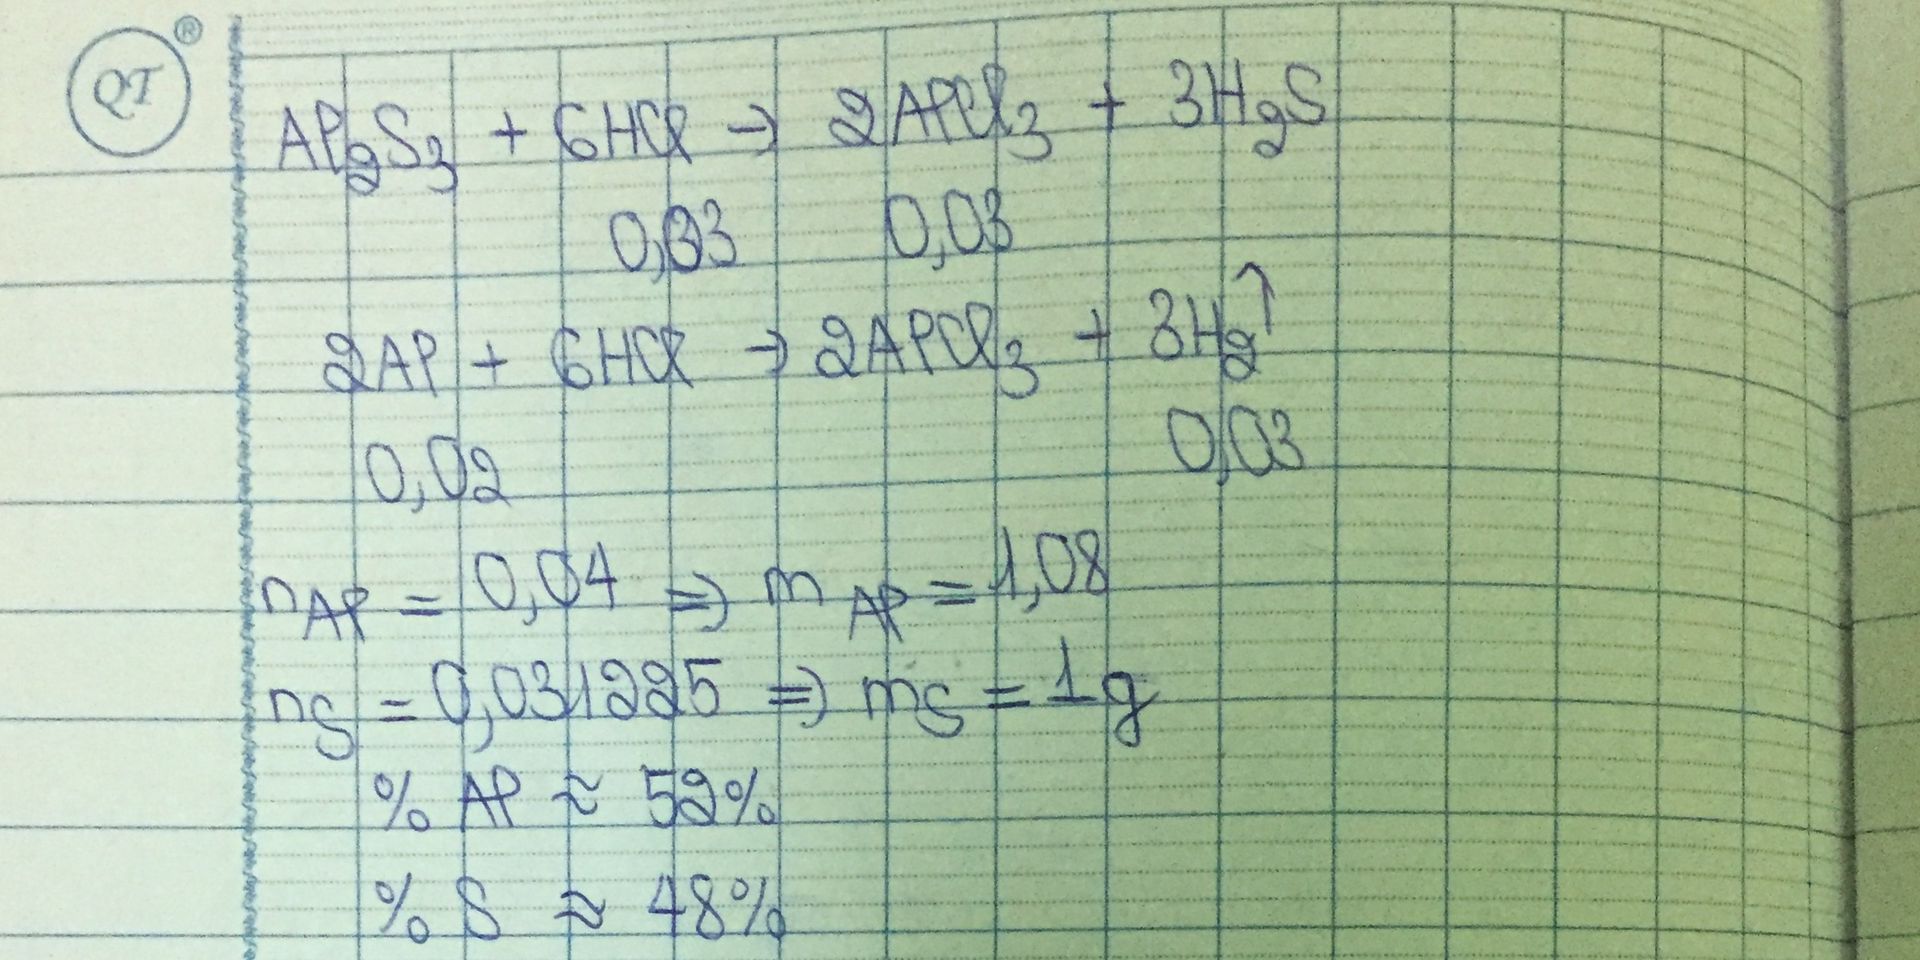 QT ®
Al₂S₃ + 6HCl → 2AlCl₃ + 3H₂S
0,03 0,03
2Al + 6HCl → 2AlCl₃ + 3H₂↑
0,02 0,03
n Al = 0,04 ⇒ m Al = 1,08
n S = 0,031225 ⇒ m S = 1g
% Al ≈ 52%
% S ≈ 48%